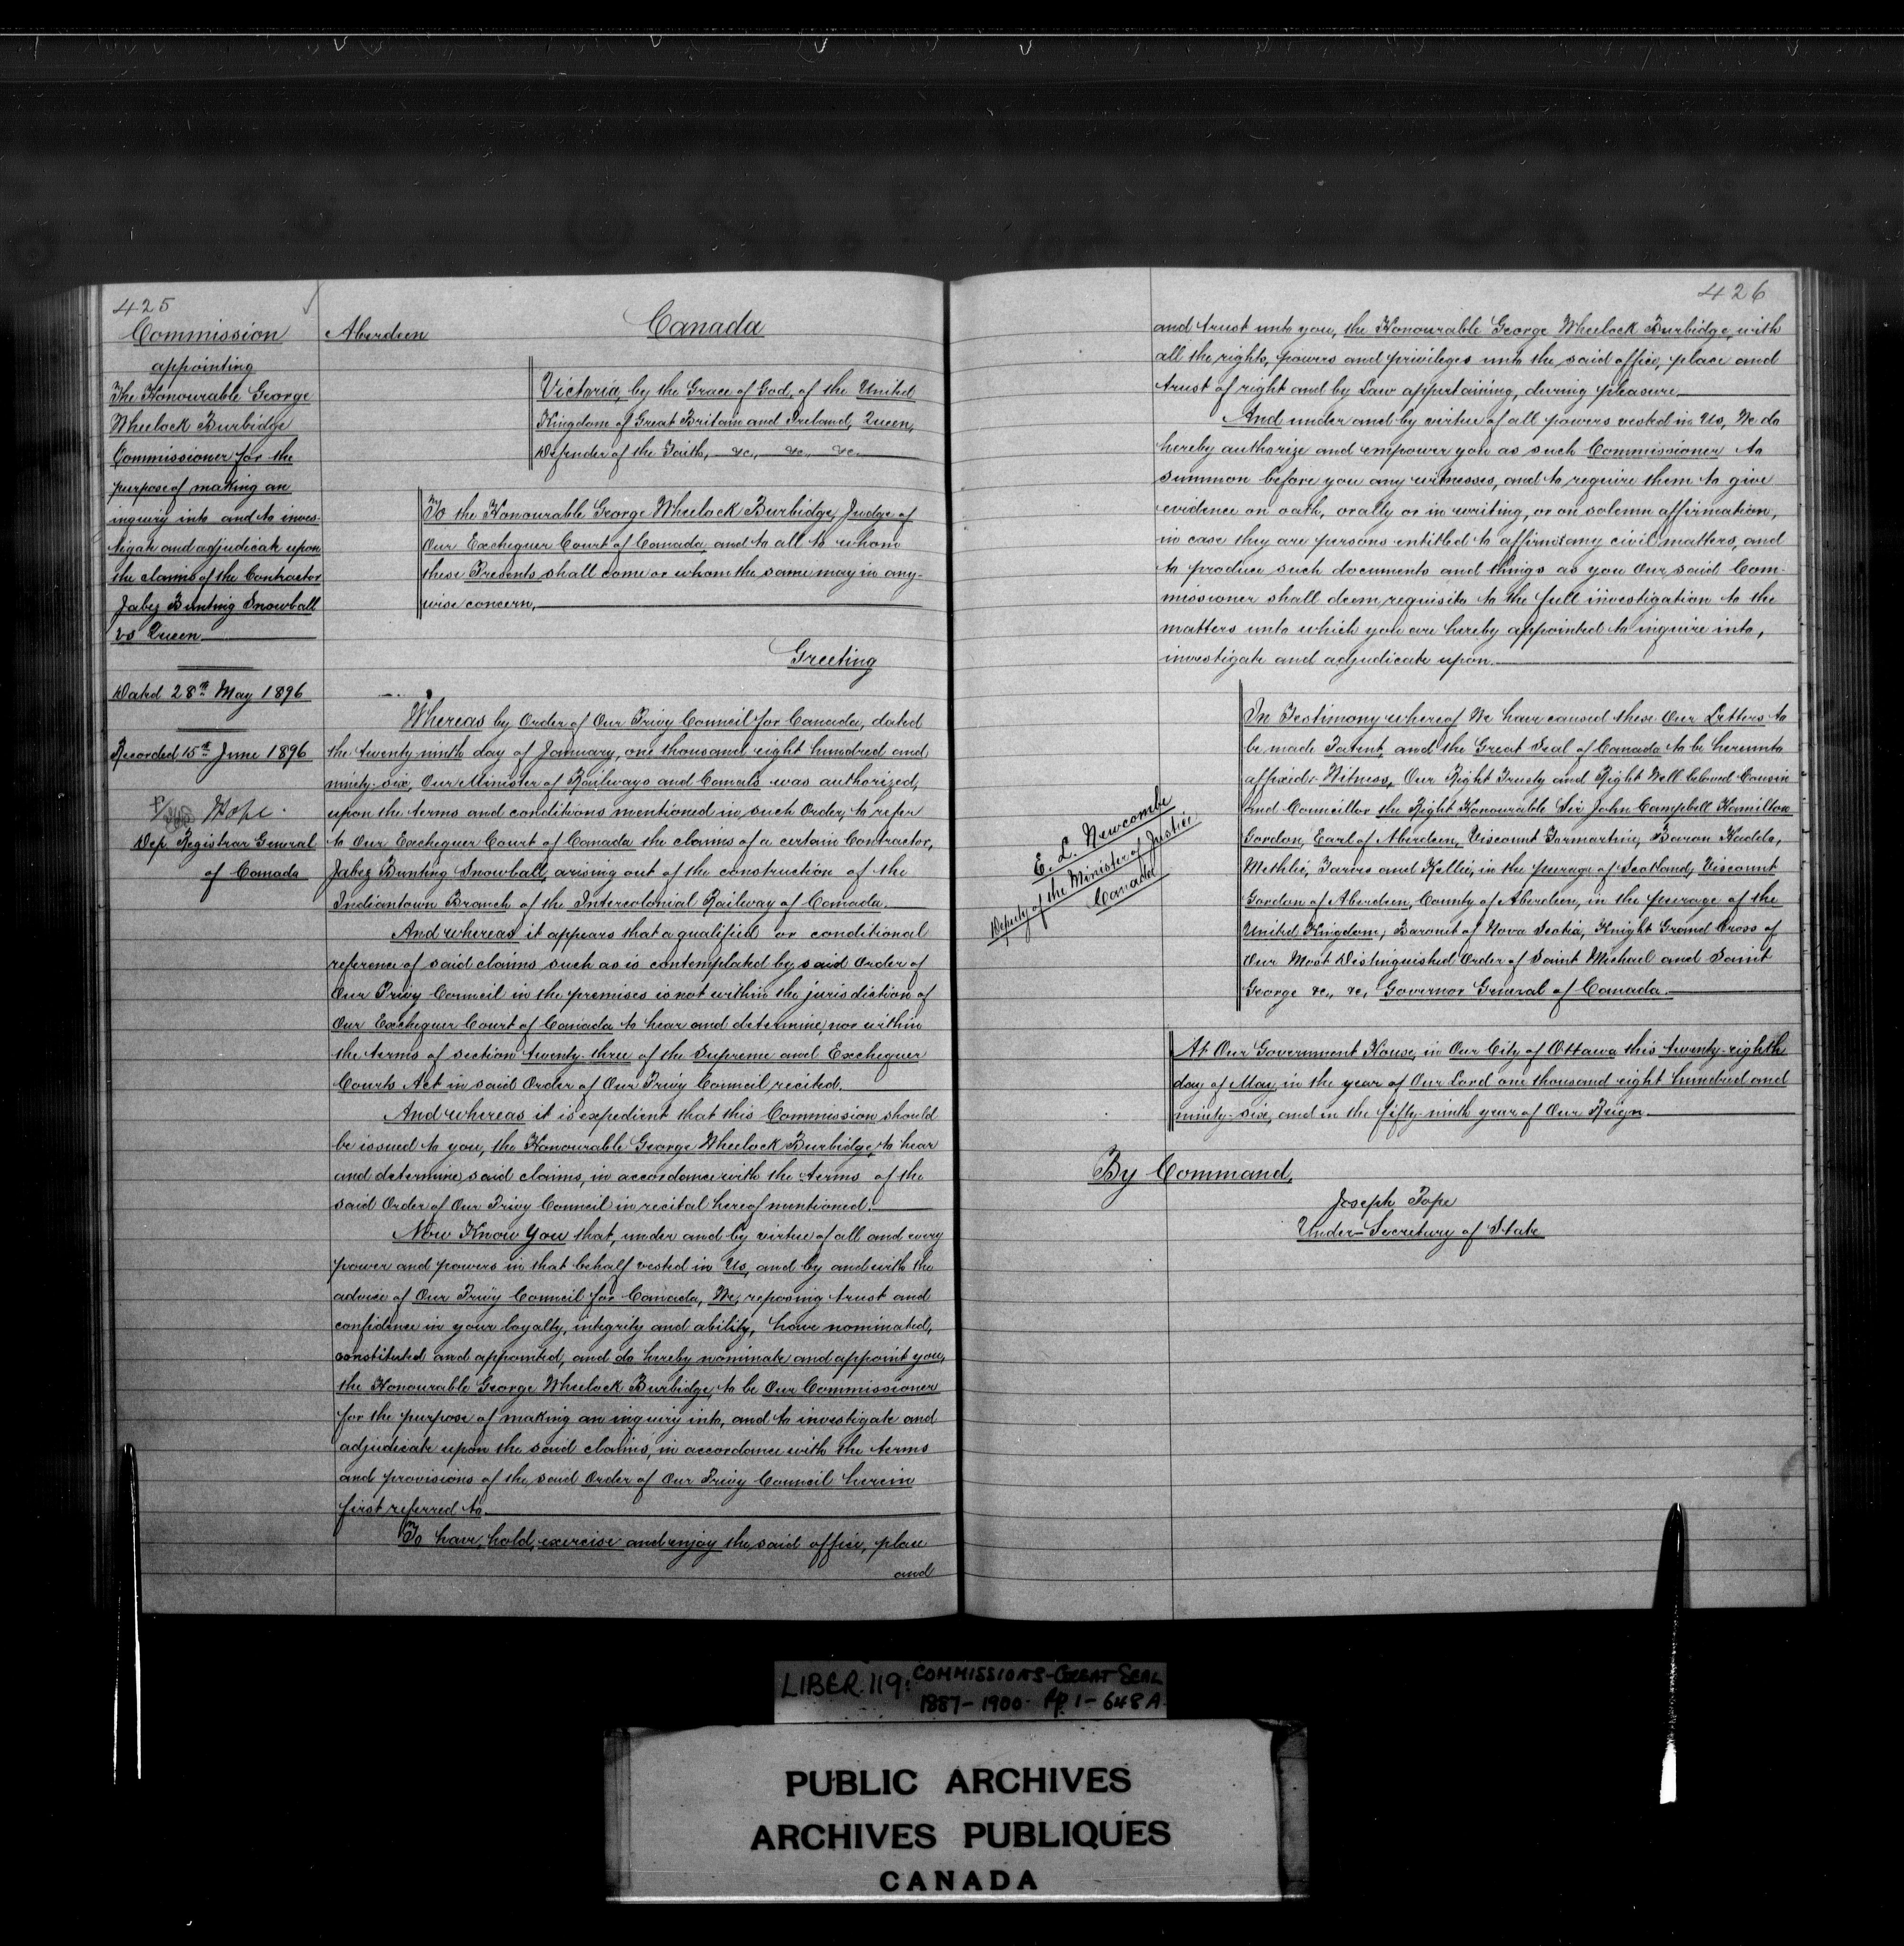 425
Commission
appointing
The Honourable George
Wheelock Burbidge
Commissioner for the
purpose of making an
inquiry into and to inves-
tigate and adjudicate upon
the claims of the Contractor
Jabez Bunting Snowball
vs Queen
Dated 28th May 1896
Recorded 15th June 1896
Pope
Dep Registrar General
of Canada
Aberdeen
Canada
Victoria, by the Grace of God, of the United
Kingdom of Great Britain and Ireland, Queen,
Defender of the Faith, &c., &c., &c.
To the Honourable George Wheelock Burbidge, Judge of
Our Exchequer Court of Canada, and to all to whom
these Presents shall come or whom the same may in any-
wise concern,
Greeting
Whereas by Order of Our Privy Council for Canada, dated
the twenty ninth day of January, one thousand eight hundred and
ninety-six, Our Minister of Railways and Canals was authorized,
upon the terms and conditions mentioned in such Order, to refer
to Our Exchequer Court of Canada the claims of a certain Contractor,
Jabez Bunting Snowball, arising out of the construction of the
Indiantown Branch of the Intercolonial Railway of Canada.
And whereas it appears that a qualified or conditional
reference of said claims such as is contemplated by said Order of
Our Privy Council in the premises is not within the jurisdiction of
Our Exchequer Court of Canada to hear and determine, nor within
the terms of section twenty-three of the Supreme and Exchequer
Courts Act in said Order of Our Privy Council recited.
And whereas it is expedient that this Commission should
be issued to you, the Honourable George Wheelock Burbidge, to hear
and determine said claims, in accordance with the terms of the
said Order of Our Privy Council in recital hereof mentioned.
Now Know You that, under and by virtue of all and every
power and powers in that behalf vested in Us, and by and with the
advice of Our Privy Council for Canada, We, reposing trust and
confidence in your loyalty, integrity and ability, have nominated,
constituted and appointed, and do hereby nominate and appoint you,
the Honourable George Wheelock Burbidge, to be Our Commissioner
for the purpose of making an inquiry into, and to investigate and
adjudicate upon the said claims, in accordance with the terms
and provisions of the said Order of Our Privy Council herein
first referred to.
To have, hold, exercise and enjoy the said office, place
and
426
and trust unto you, the Honourable George Wheelock Burbidge, with
all the rights, powers and privileges unto the said office, place and
trust of right and by Law appertaining, during pleasure
And under and by virtue of all powers vested in Us, We do
hereby authorize and empower you as such Commissioner to
summon before you any witnesses, and to require them to give
evidence on oath, orally or in writing, or on solemn affirmation,
in case they are persons entitled to affirm in any civil matters, and
to produce such documents and things as you Our said Com-
missioner shall deem requisite to the full investigation to the
matters unto which you are hereby appointed to inquire into,
investigate and adjudicate upon.
In Testimony whereof We have caused these Our Letters to
be made Patent, and the Great Seal of Canada to be hereunto
affixed. Witness, Our Right Trusty and Right Well beloved Cousin
and Councillor the Right Honourable Sir John Campbell Hamilton
Gordon, Earl of Aberdeen, Viscount Formartine, Baron Haddo,
Methlic, Tarves and Kellie, in the peerage of Scotland, Viscount
Gordon of Aberdeen, County of Aberdeen, in the peerage of the
United Kingdom; Baronet of Nova Scotia, Knight Grand Cross of
Our Most Distinguished Order of Saint Michael and Saint
George &c., &c., Governor General of Canada.
E. L. Newcombe
Deputy of the Minister of Justice
Canada
At Our Government House, in Our City of Ottawa this twenty-eighth
day of May, in the year of Our Lord one thousand eight hundred and
ninety-six, and in the fifty-ninth year of Our Reign
By Command,
Joseph Pope
Under-Secretary of State
LIBER.119: COMMISSIONS-GREAT SEAL
1887-1900. Pp. 1-648A.
PUBLIC ARCHIVES
ARCHIVES PUBLIQUES
CANADA